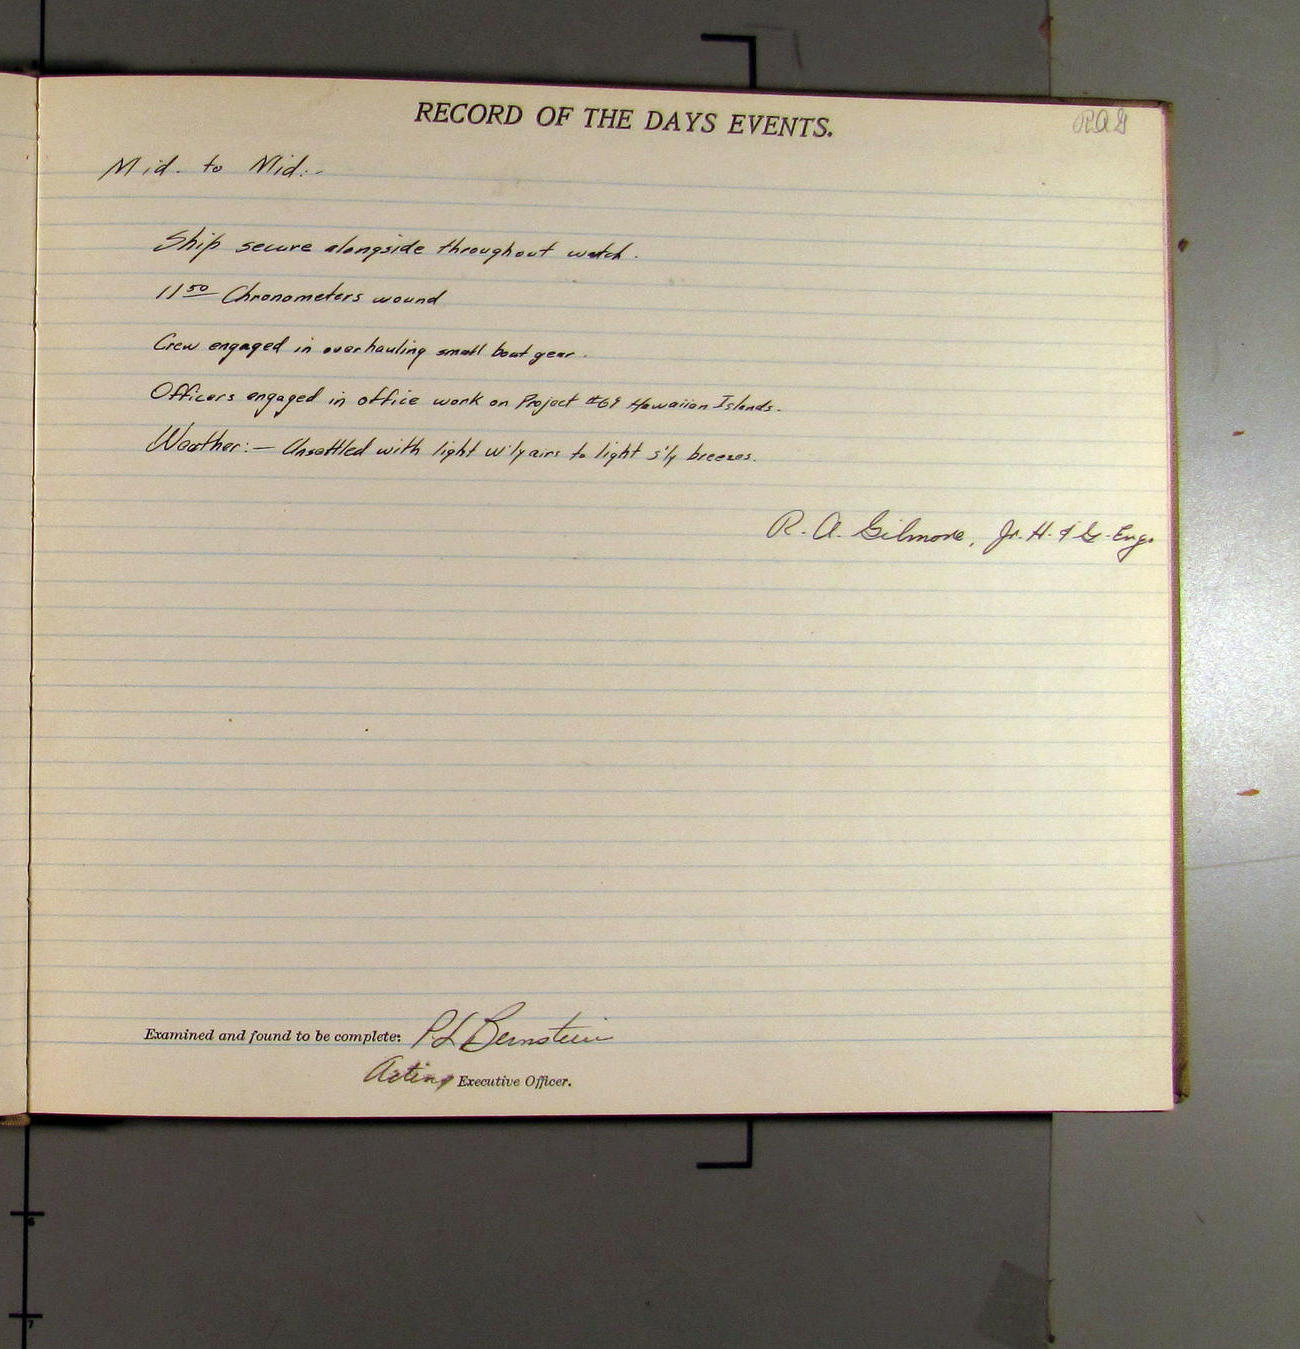 RECORD OF THE DAYS EVENTS.
RAG
Mid. to Mid:-
Ship secure alongside throughout watch.
11 50 Chronometers wound
Crew engaged in overhauling small boat gear.
Officers engaged in office work on Project #69 Hawaiian Islands.
Weather:— Unsettled with light W'ly airs to light S'ly breezes.
R. A. Gilmore, Jr. H. & G. Engr.
Examined and found to be complete: P L Bernstein
Acting Executive Officer.
6
7